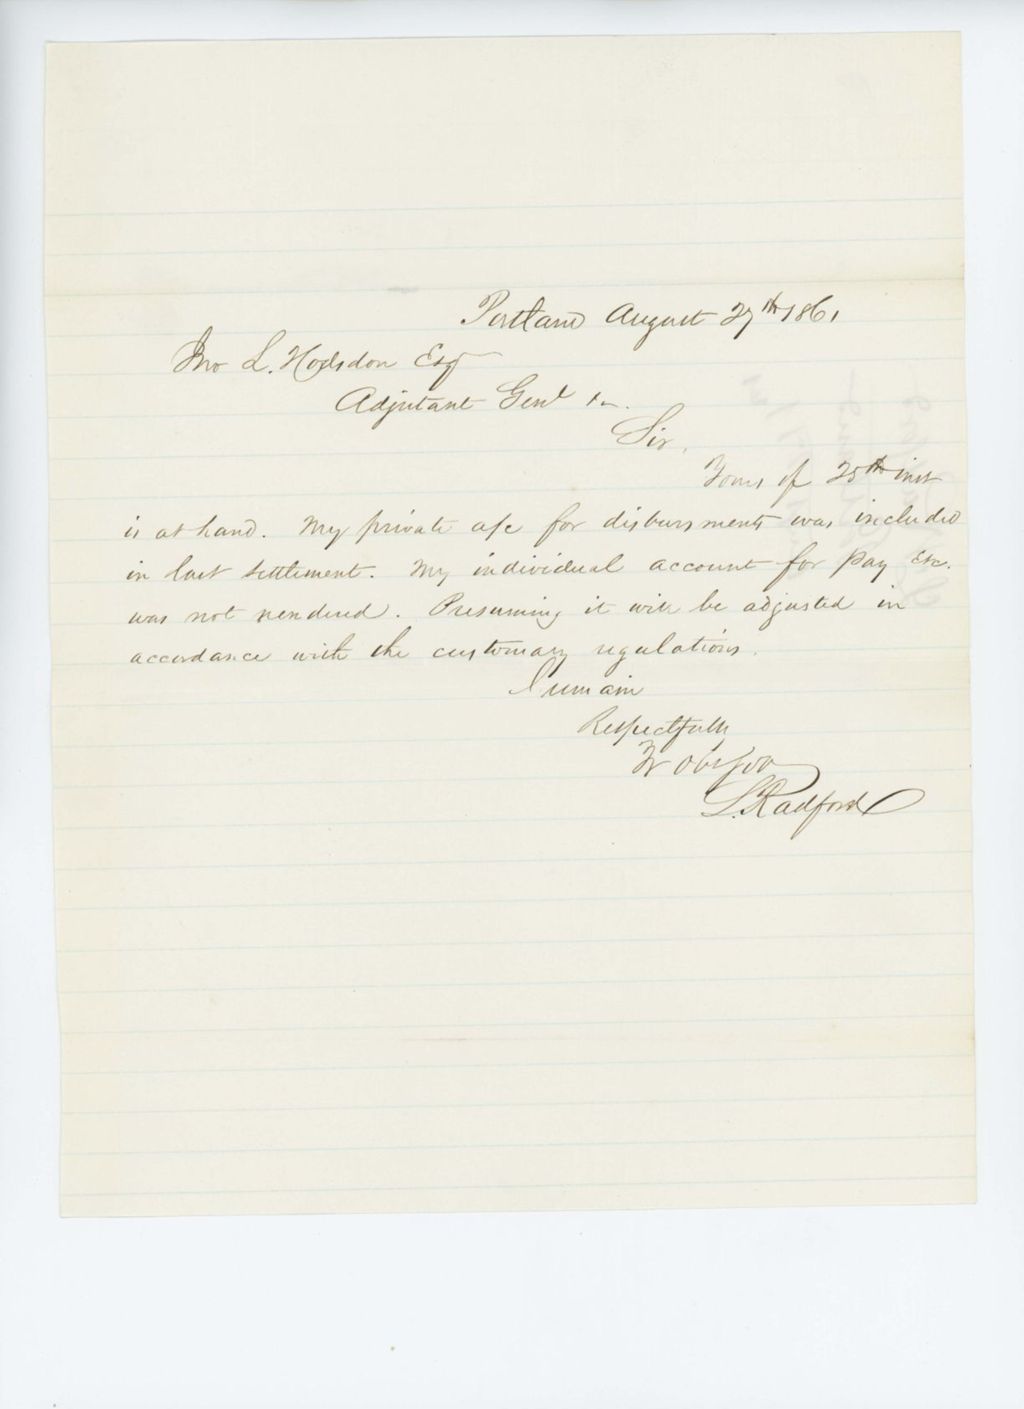 Portland August 27th 1861
Jno L. Hodsdon Esq
Adjutant Genl &c.
Sir,
Yours of 25th inst
is at hand. My private a/c for disbursments was included
in last settlement. My individual account for Pay Etc.
was not rendered. Presuming it will be adjusted in
accordance with the customary regulations.
I remain
Respectfully
Yr obt
L. Radford